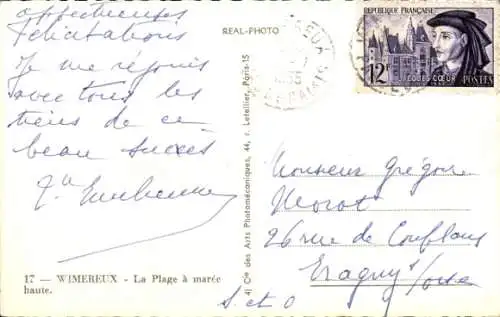 affectueuses
félicitations
Je me réjouis
avec tous les
tiens de ce
beau succès
17 — WIMEREUX - La Plage à marée
haute.
REAL-PHOTO
4) Cie des Arts Photomécaniques, 44, r. Letellier, Paris-15
RÉPUBLIQUE FRANÇAISE
12F
JACQUES CŒUR
POSTES
Monsieur Grégoire
Morot
26 rue de Conflans
Eragny s/oise
S. et O